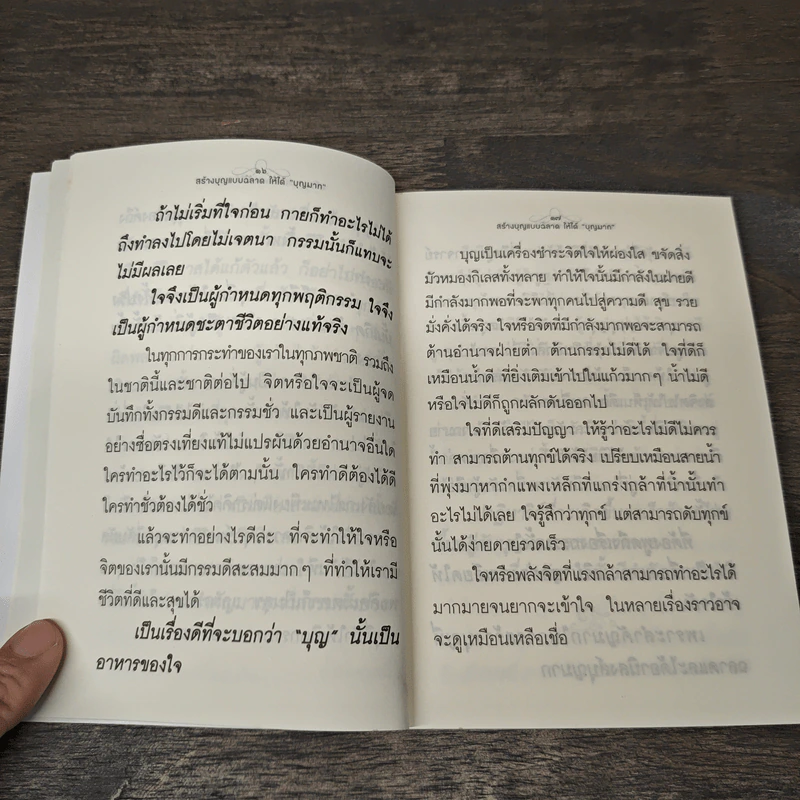 ๑๖
สร้างบุญแบบฉลาด ให้ได้ "บุญมาก"
ถ้าไม่เริ่มที่ใจก่อน กายก็ทำอะไรไม่ได้
ถึงทำลงไปโดยไม่เจตนา กรรมนั้นก็แทบจะ
ไม่มีผลเลย
ใจจึงเป็นผู้กำหนดทุกพฤติกรรม ใจจึง
เป็นผู้กำหนดชะตาชีวิตอย่างแท้จริง
ในทุกการกระทำของเราในทุกภพชาติ รวมถึง
ในชาตินี้และชาติต่อไป จิตหรือใจจะเป็นผู้จด
บันทึกทั้งกรรมดีและกรรมชั่ว และเป็นผู้รายงาน
อย่างซื่อตรงเที่ยงแท้ไม่แปรผันด้วยอำนาจอื่นใด
ใครทำอะไรไว้ก็จะได้ตามนั้น ใครทำดีต้องได้ดี
ใครทำชั่วต้องได้ชั่ว
แล้วจะทำอย่างไรดีล่ะ ที่จะทำให้ใจหรือ
จิตของเรานั้นมีกรรมดีสะสมมากๆ ที่ทำให้เรามี
ชีวิตที่ดีและสุขได้
เป็นเรื่องดีที่จะบอกว่า "บุญ" นั้นเป็น
อาหารของใจ
๑๗
สร้างบุญแบบฉลาด ให้ได้ "บุญมาก"
บุญเป็นเครื่องชำระจิตใจให้ผ่องใส ขจัดสิ่ง
มัวหมองกิเลสทั้งหลาย ทำให้ใจนั้นมีกำลังในฝ่ายดี
มีกำลังมากพอที่จะพาทุกคนไปสู่ความดี สุข รวย
มั่งคั่งได้จริง ใจหรือจิตที่มีกำลังมากพอจะสามารถ
ต้านอำนาจฝ่ายต่ำ ต้านกรรมไม่ดีได้ ใจที่ดีก็
เหมือนน้ำดี ที่ยิ่งเติมเข้าไปในแก้วมากๆ น้ำไม่ดี
หรือใจไม่ดีก็ถูกผลักดันออกไป
ใจที่ดีเสริมปัญญา ให้รู้ว่าอะไรไม่ดีไม่ควร
ทำ สามารถต้านทุกข์ได้จริง เปรียบเหมือนสายน้ำ
ที่พุ่งมาหากำแพงเหล็กที่แกร่งกล้าที่น้ำนั้นทำ
อะไรไม่ได้เลย ใจรู้สึกว่าทุกข์ แต่สามารถดับทุกข์
นั้นได้ง่ายดายรวดเร็ว
ใจหรือพลังจิตที่แรงกล้าสามารถทำอะไรได้
มากมายจนยากจะเข้าใจ ในหลายเรื่องราวอาจ
จะดูเหมือนเหลือเชื่อ